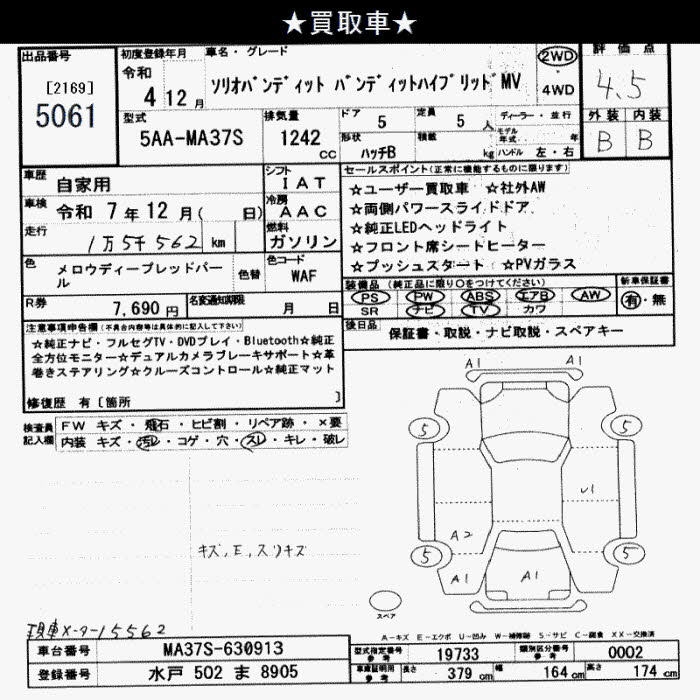 ★買取車★
出品番号
[2169]
5061
初度登録年月
令和
4 12月
車名・グレード
ソリオバンディット バンディットハイブリッド MV
2WD
・
4WD
評価点
4.5
型式
5AA-MA37S
排気量
1242
cc
ドア
5
定員
5 人
形状
ハッチB
積載
kg
ディーラー・並行
モデル年式
年
ハンドル 左・右
外装
内装
B
B
車歴
自家用
シフト
IAT
車検
令和 7年12月( 日)
冷房
AAC
走行
1万5千562 km
燃料
ガソリン
色
メロウディープレッドパール
色替
色コード
WAF
R券
7,690円
名変通知期限
月 日
セールスポイント(正常に機能するものに限ります)
☆ユーザー買取車 ☆社外AW
☆両側パワースライドドア
☆純正LEDヘッドライト
☆フロント席シートヒーター
☆プッシュスタート ☆PVガラス
装備品 (純正品に限り○をつけてください)
PS PW ABS エアB AW
SR ナビ TV カワ
新車保証書
有・無
後日品
保証書・取説・ナビ取説・スペアキー
注意事項申告欄(不具合内容等は具体的に記入して下さい)
☆純正ナビ・フルセグTV・DVDプレイ・Bluetooth☆純正
全方位モニター☆デュアルカメラブレーキサポート☆革
巻きステアリング☆クルーズコントロール☆純正マット
修復歴 有〔箇所 〕
検査員
記入欄
FW キズ・飛石・ヒビ割・リペア跡・×要
内装 キズ・汚レ・コゲ・穴・スレ・キレ・破レ
キズ,E,スリキズ
現車メーター15562
A1
A1
5
5
U1
A2
5
5
A1
A1
スペア
A-キズ E-エクボ U-凹み W-補修跡 S-サビ C-腐食 XX-交換済
車台番号
MA37S-630913
登録番号
水戸 502 ま 8905
型式指定番号
参考
19733
類別区分番号
参考
0002
車庫証明用
参考
長さ
379 cm
幅
164 cm
高さ
174 cm